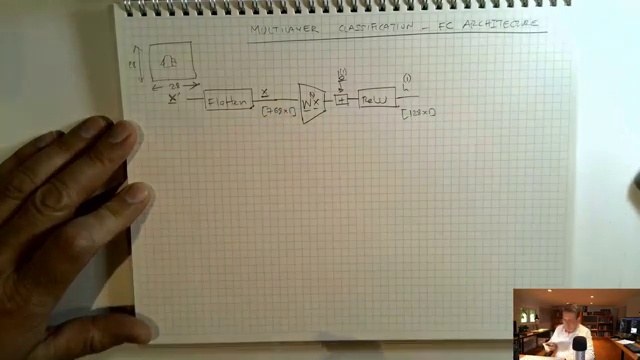 MULTILAYER CLASSIFICATION - FC ARCHITECTURE
28
28
x'
Flatten
x
[768x1]
W(1) x
b(1)
+
ReLU
h(1)
[128x1]